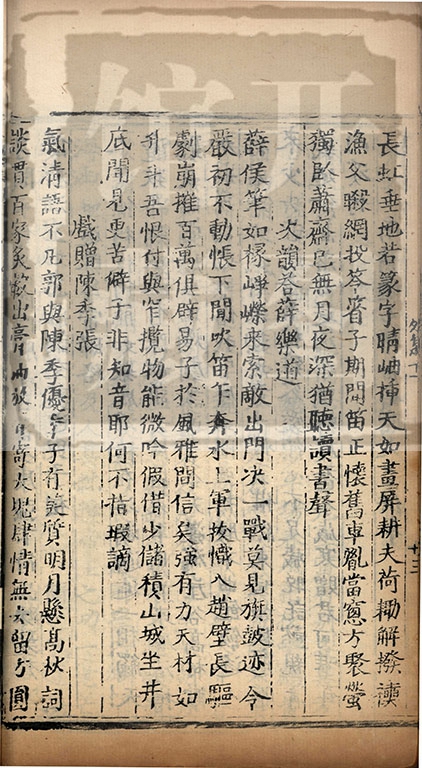 長虹垂地若篆字晴岫揷天如畫屏耕夫荷耡解襏襫
漁父𨟻網投笭箵子期聞笛正懷舊車胤當窻方聚螢
獨卧蕭齋已無月夜深猶聽讀書聲
次韻荅薛樂道
薛侯筆如椽崢嶸來索敵出門决一戰莫見旗皷迹今
嚴初不動帳下聞吹笛乍奔水上軍拔幟入趙壁長驅
劇崩摧百萬俱辟易子於風雅間信矣強有力天材如
升斗吾恨付與窄攬物能微吟假借少儲積山城坐井
底聞見更苦僻子非知音耶何不指瑕謫
戲贈陳季張
氣清語不凡郭與陳季優年子有美質明月懸高秋詞
談貫百家炙轂出膏油放高大塊肆情無去留方圓
外集卞
十三